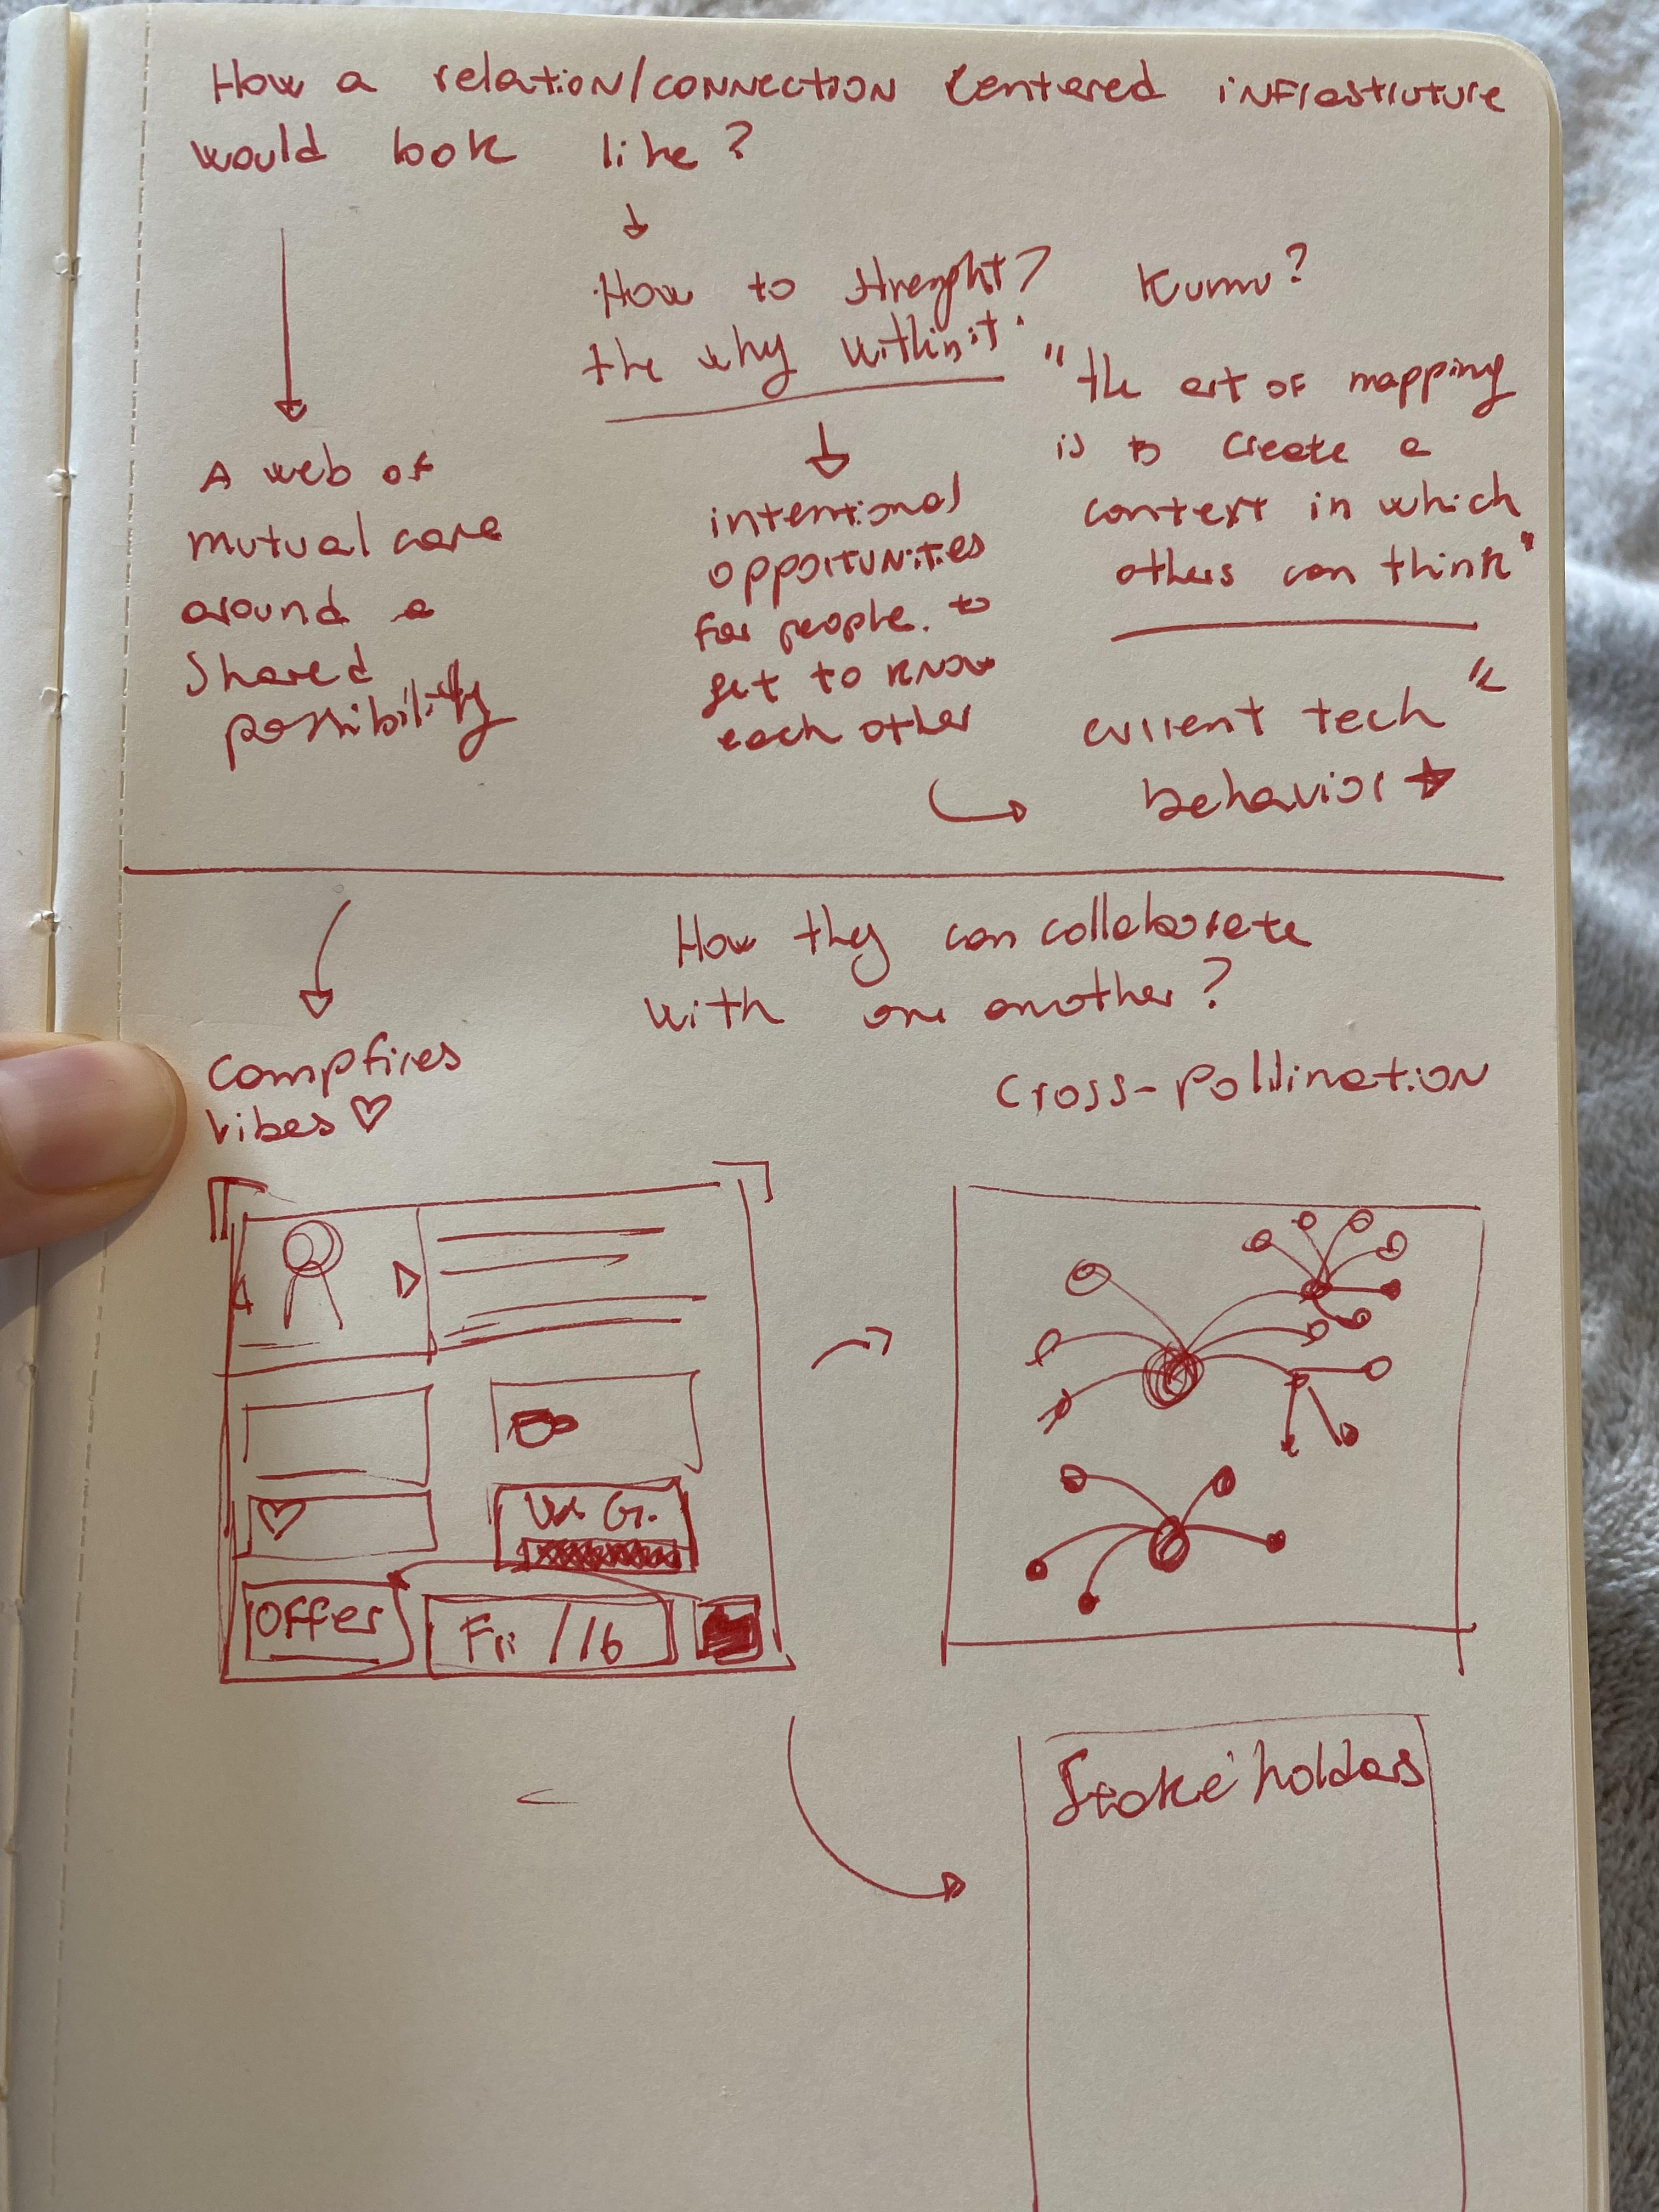 How a relation/connection centered infrastruture
would look like?
How to strenght?
the why within it.
Kumu?
"the art of mapping
is to create a
context in which
others can think"
A web of
mutual care
around a
shared
possibility
intentional
opportunities
for people. to
get to know
each other
current tech
behavior
How they can collaborate
with one another?
Campfires
vibes ♡
Cross-pollination
G.
Offer
Fri /16
Stake holders